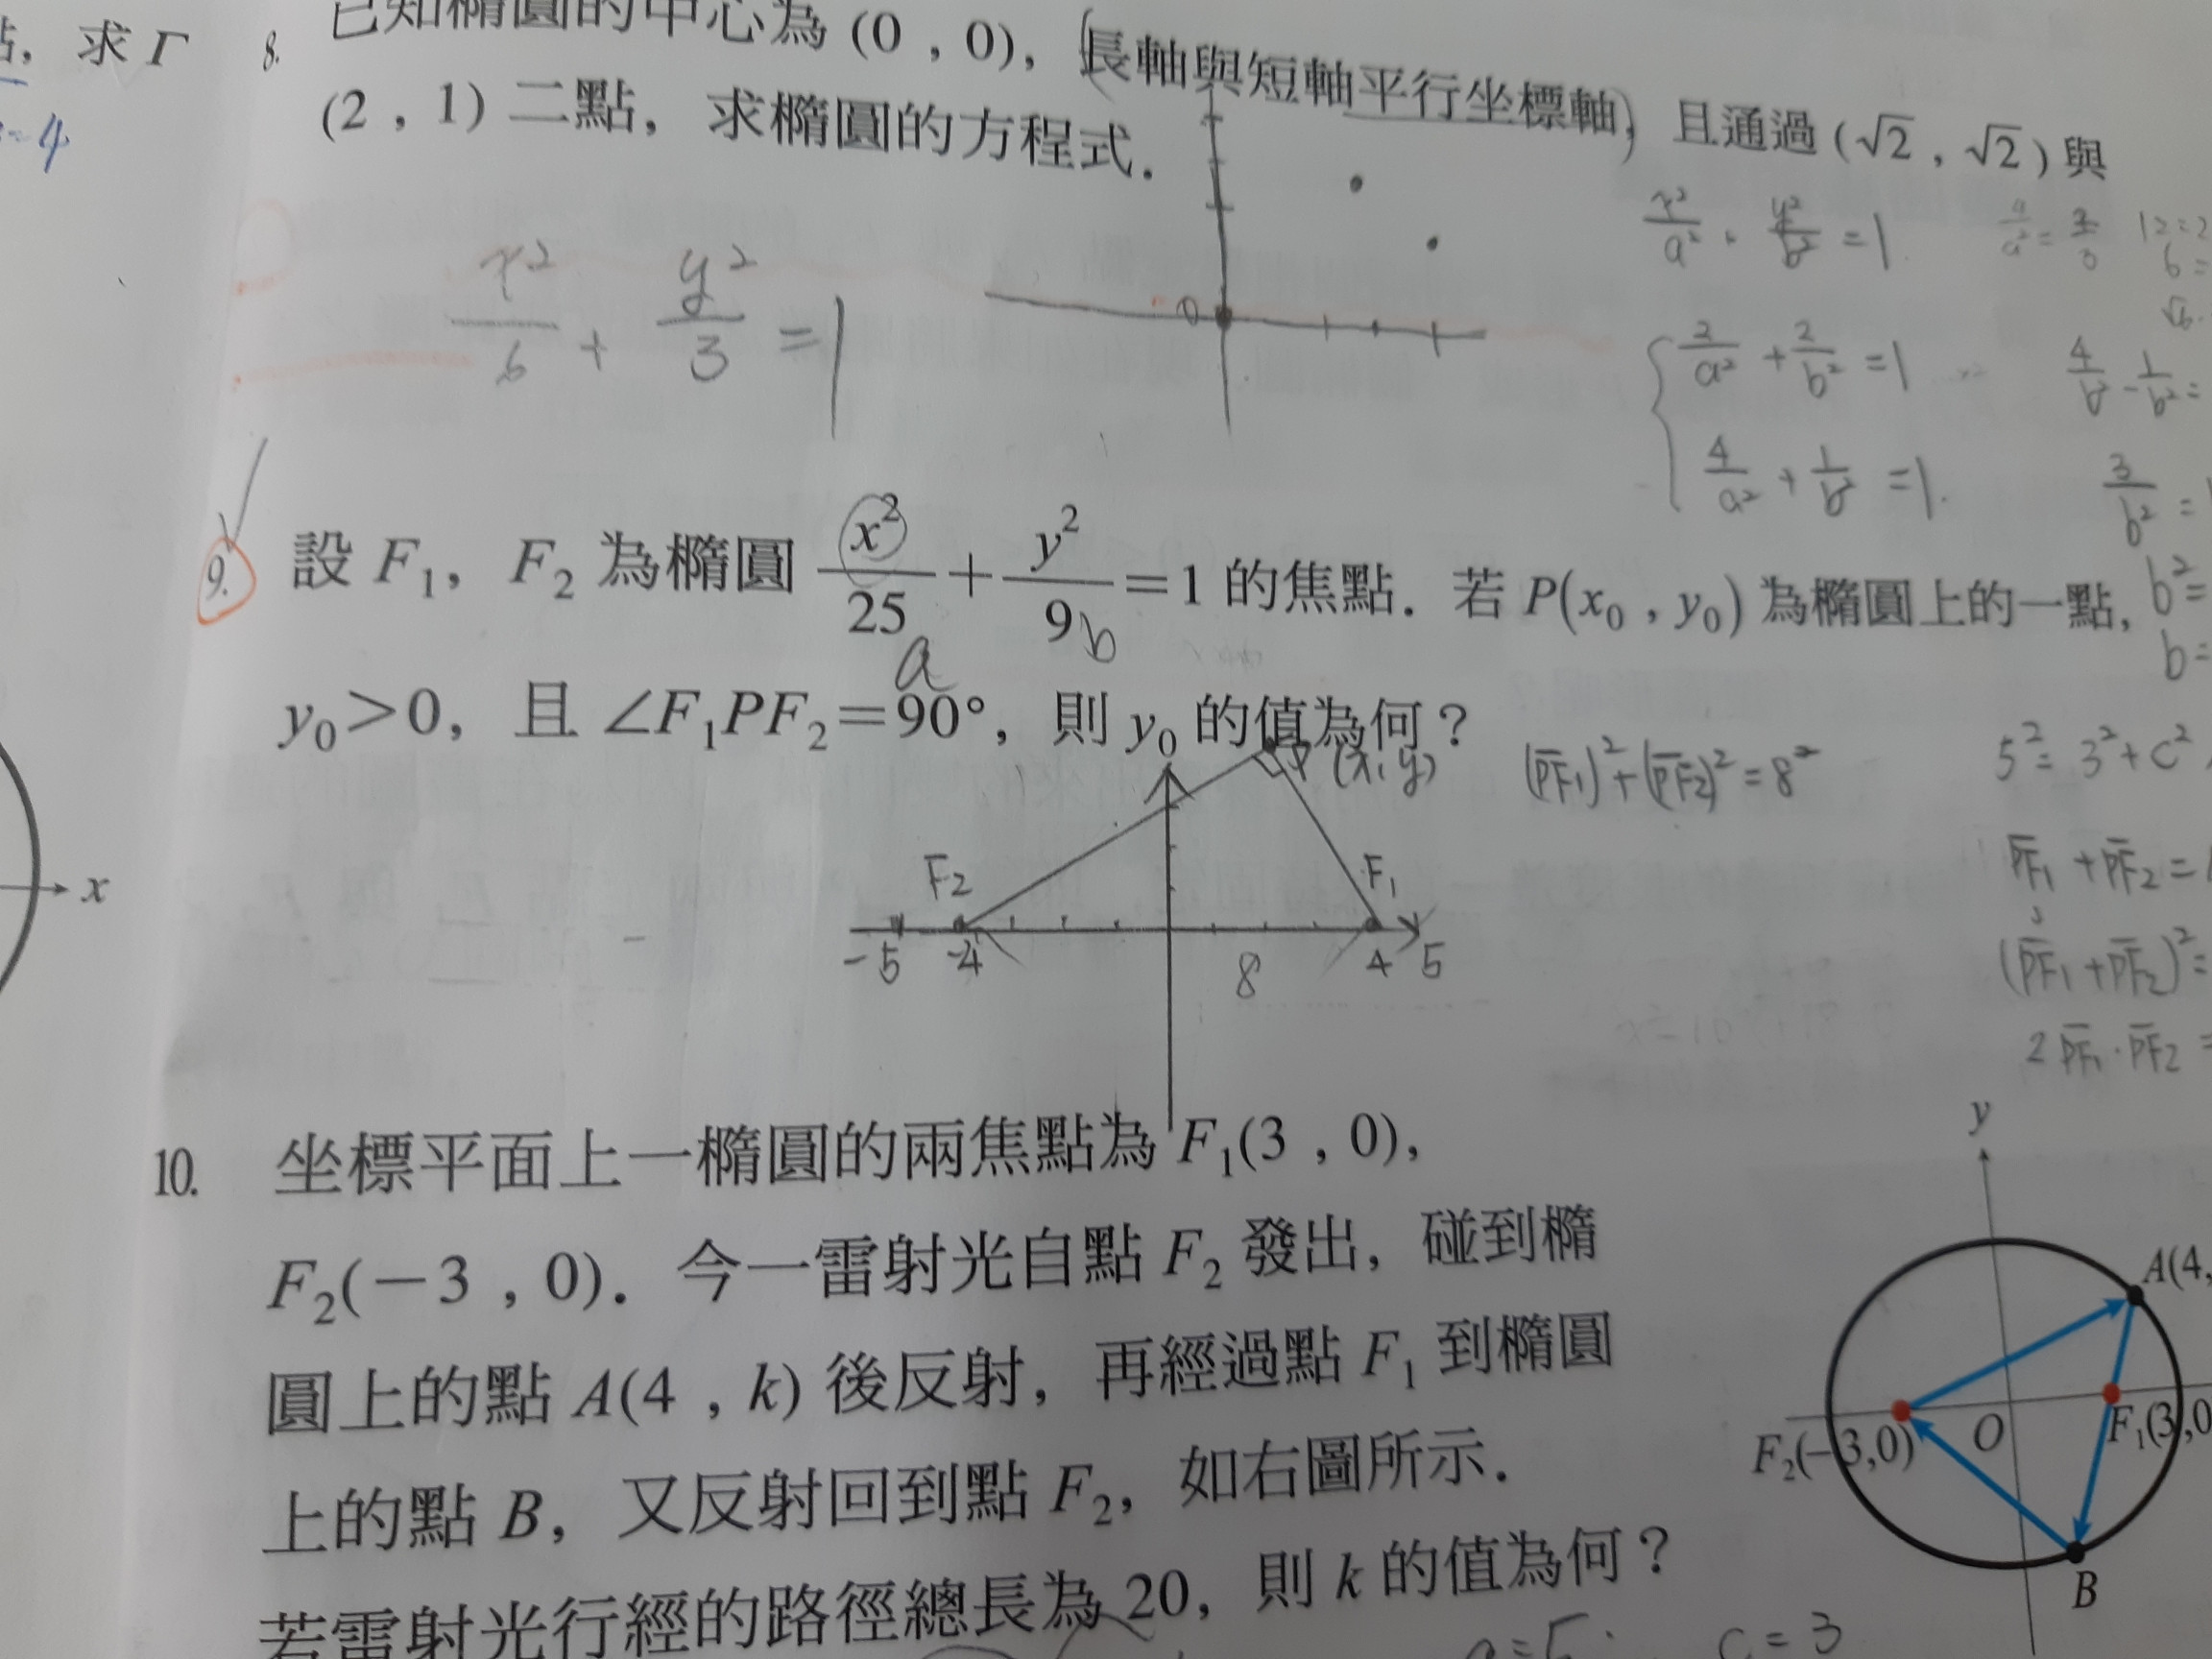 點, 求 Γ
=4
8. 已知橢圓的中心為 (0 , 0), 長軸與短軸平行坐標軸, 且通過 (√2 , √2) 與
(2 , 1) 二點, 求橢圓的方程式.
x²/6 + y²/3 = 1
0
x²/a² + y²/b² = 1
2/a² + 2/b² = 1
4/a² + 1/b² = 1.
3/b² =
b² =
b =
9. 設 F₁, F₂ 為橢圓 x²/25 + y²/9 = 1 的焦點. 若 P(x₀ , y₀) 為橢圓上的一點,
a b
y₀>0, 且 ∠F₁PF₂=90°, 則 y₀ 的值為何?
P (x, y)
(PF₁)² + (PF₂)² = 8²
5² = 3² + c²
F₂ F₁
-5 -4 8 4 5
PF₁ + PF₂ =
(PF₁ + PF₂)² =
2 PF₁ · PF₂ =
x
10. 坐標平面上一橢圓的兩焦點為 F₁(3 , 0),
F₂(−3 , 0). 今一雷射光自點 F₂ 發出, 碰到橢
圓上的點 A(4 , k) 後反射, 再經過點 F₁ 到橢圓
上的點 B, 又反射回到點 F₂, 如右圖所示.
若雷射光行經的路徑總長為 20, 則 k 的值為何?
y
A(4,
F₂(−3,0) O F₁(3,0
B
a=5 c=3